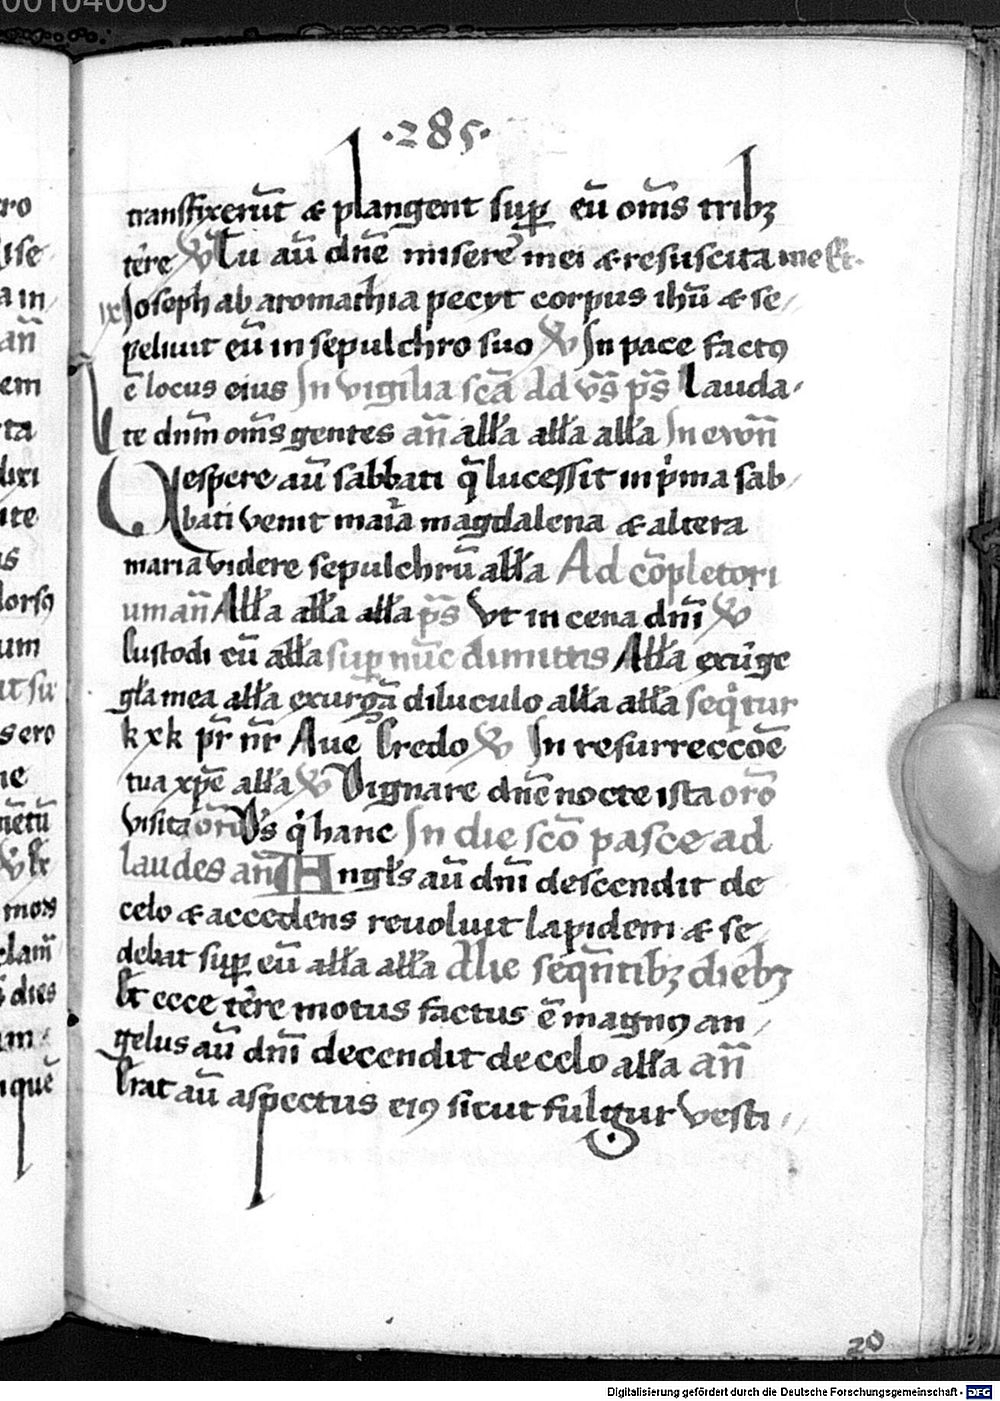 00104065
·285·
transfixerūt & plangent sup eū om̄s tribꝫ
tēre ℣ Tu aū dn̄e miserē mei & resuscita me Et.
Joseph ab aromathia pecyt corpus ihū & se/
peliuit eū in sepulchro suo ℣ In pace factꝯ
ē locus eius In vigilia scā ad vs̄ ps̄ Lauda/
te dnm̄ om̄s gentes an̄ alła alła alła In ewn̄
Vespere aū sabbati q̄ lucessit in pͥma sab/
bati venit maria magdalena & altera
maria videre sepulchrū alła Ad cōpletori
um an̄ Alła alła alła ps̄ Vt in cena dn̄i ℣
Custodi eū alła sup nūc dimittis Alła exurge
gła mea alła exurgā diluculo alła alła seqͥtur
k x k pr̄ nr̄ Aue Credo ℣ In resurreccōe
tua xp̄e alła ℣ Dignare dn̄e nocte ista orō
visita orō Ds̄ qͥ hanc In die scō pasce ad
laudes an̄ Angłs aū dn̄i descendit de
celo & accedens reuoluit lapidem & se/
debat sup eū alła alła Alie seqn̄tibꝫ diebꝫ
Et ecce tēre motus factus ē magnꝯ an/
gelus aū dn̄i decendit de celo alła an̄
Erat aū aspectus eiꝯ sicut fulgur vesti/
20
Digitalisierung gefördert durch die Deutsche Forschungsgemeinschaft - DFG